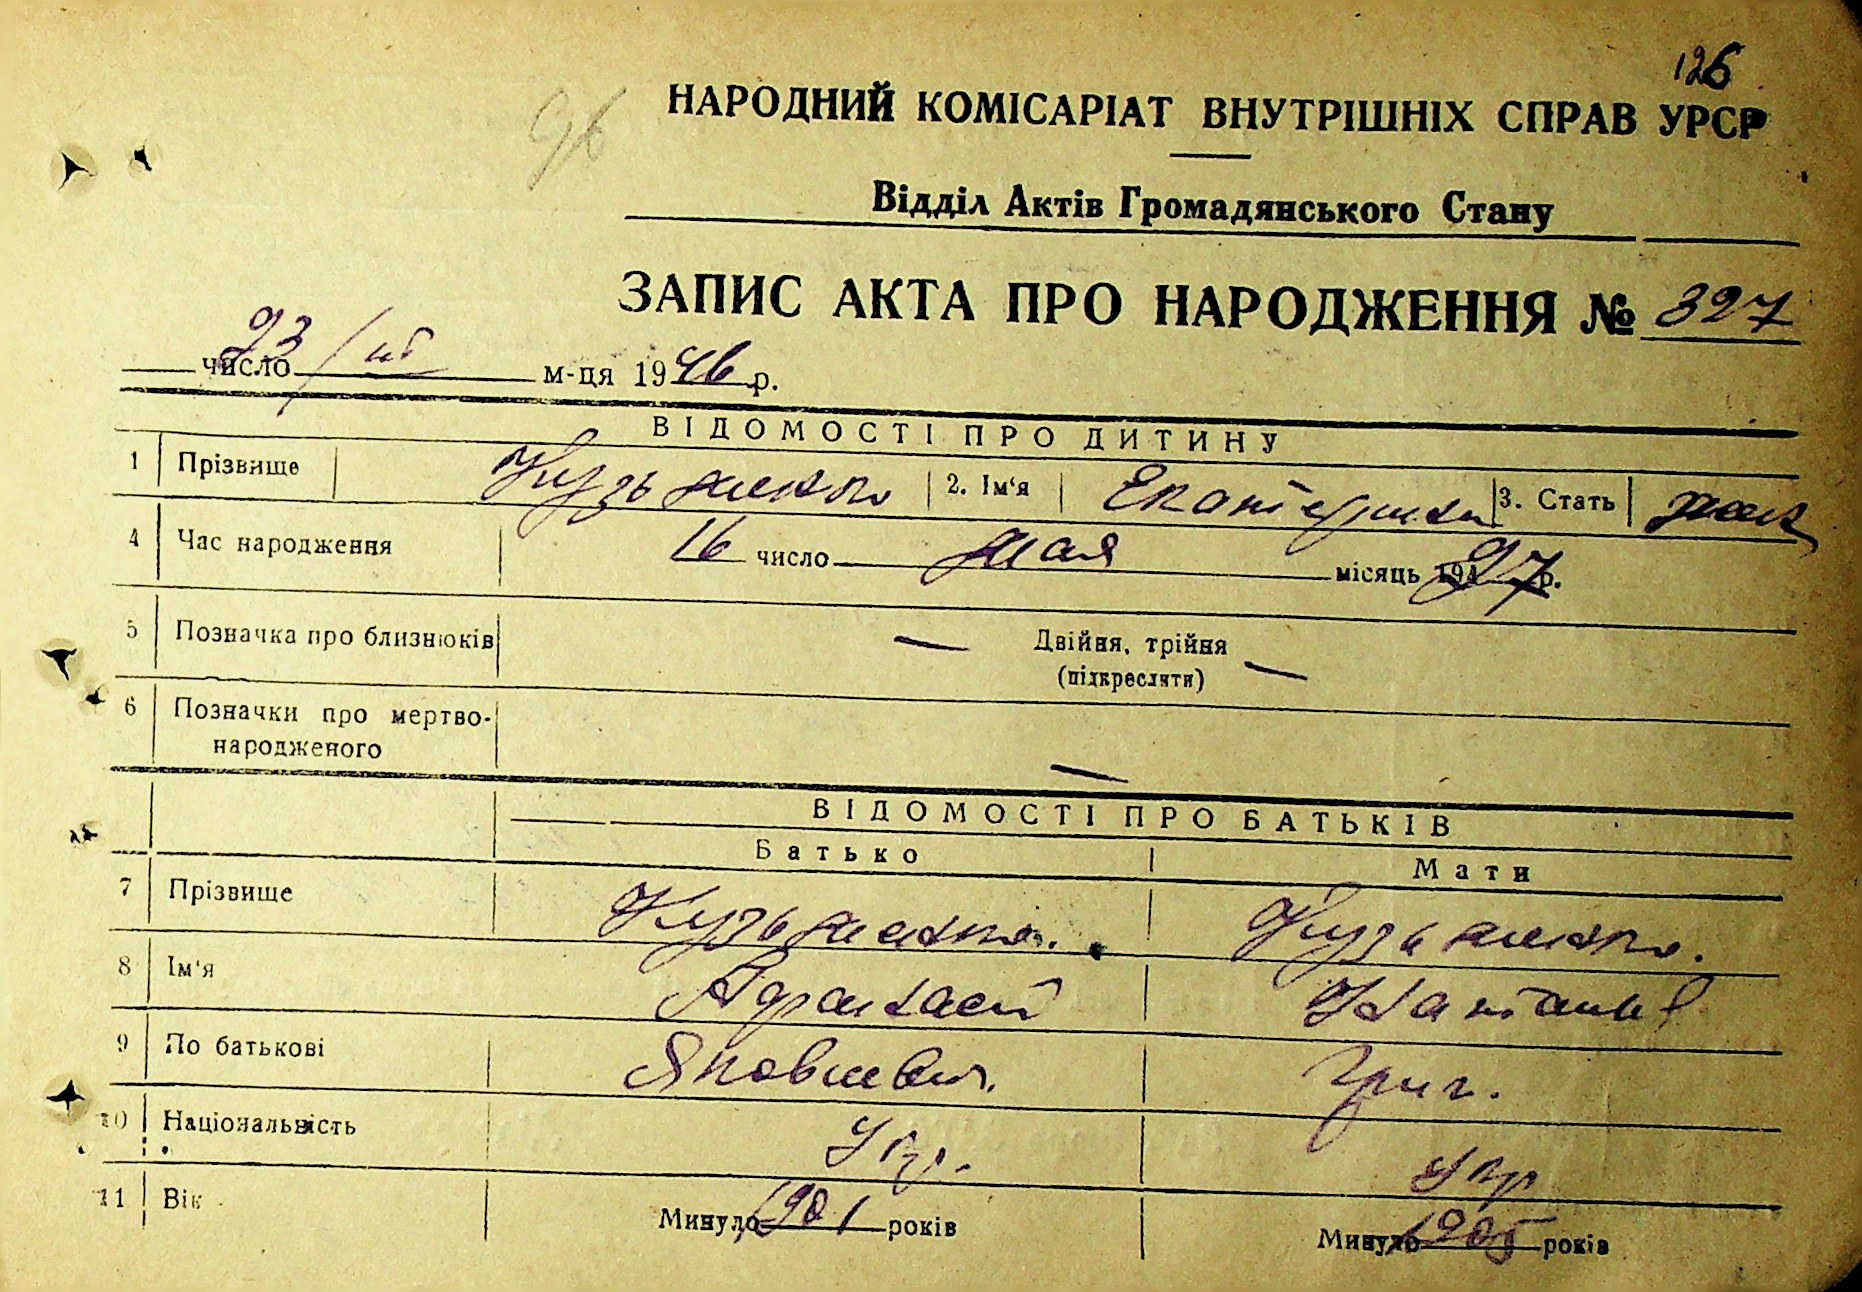 126
96
НАРОДНИЙ КОМІСАРІАТ ВНУТРІШНІХ СПРАВ УРСР
Відділ Актів Громадянського Стану
ЗАПИС АКТА ПРО НАРОДЖЕННЯ № 327
23 число м-ця 1946 р.
ВІДОМОСТІ ПРО ДИТИНУ
1 Прізвище Кузьменко 2. Ім'я Екатерина 3. Стать жен
4 Час народження 16 число мая місяць 1927 р.
5 Позначка про близнюків — Двійня, трійня —
(підкреслити)
6 Позначки про мертво-
народженого —
ВІДОМОСТІ ПРО БАТЬКІВ
Батько Мати
7 Прізвище Кузьменко. Кузьменко.
8 Ім'я Афанасий
9 По батькові Яковлевич. Григ.
10 Національність Укр. Укр
11 Вік Минуло 1901 років Минуло 1905 років